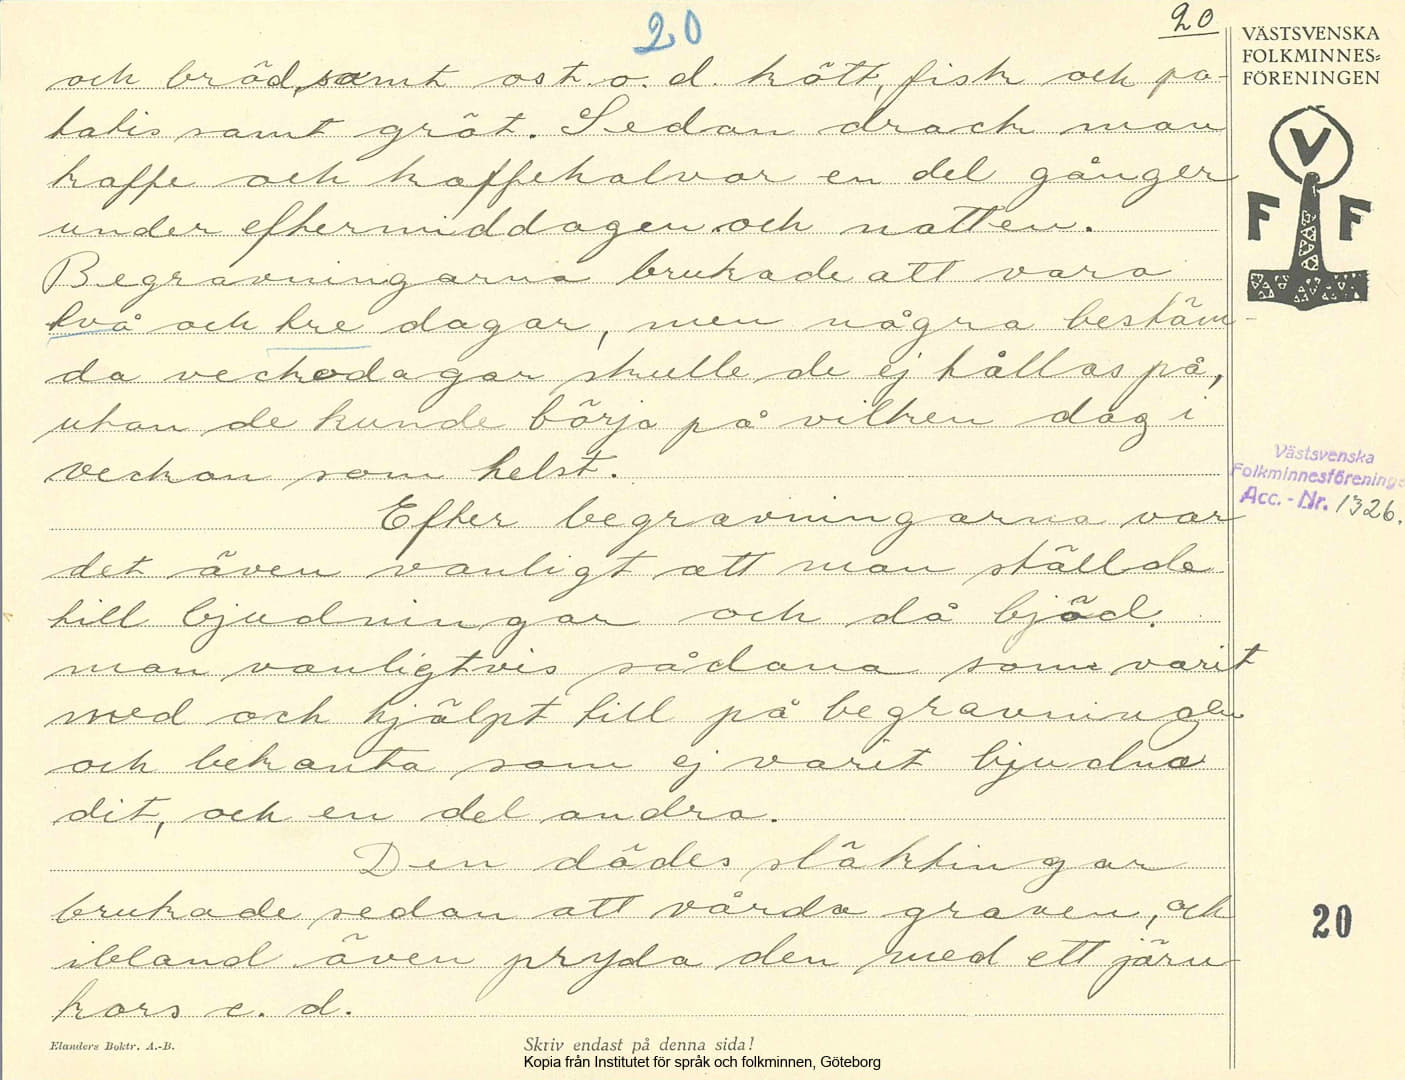 20
20
och bröd, samt ost o. d. kött, fisk och po-
tatis samt gröt. Sedan drack man
kaffe och kaffehalvor en del gånger
under eftermiddagen och natten.
Begravningarna brukade att vara
två och tre dagar, men några bestäm-
da veckodagar skulle de ej hållas på,
utan de kunde börja på vilken dag i
veckan som helst.
Efter begravningarna var
det även vanligt att man ställde
till bjudningar och då bjöd
man vanligtvis sådana som varit
med och hjälpt till på begravningen
och bekanta som ej varit bjudna
dit, och en del andra.
Den dödes släktingar
brukade sedan att vårda graven, och
ibland även pryda den med ett järn
kors e. d.
VÄSTSVENSKA
FOLKMINNES=
FÖRENINGEN
V
F F
Västsvenska
Folkminnesförening
Acc. - Nr. 1326.
20
Elanders Boktr. A.-B.
Skriv endast på denna sida!
Kopia från Institutet för språk och folkminnen, Göteborg